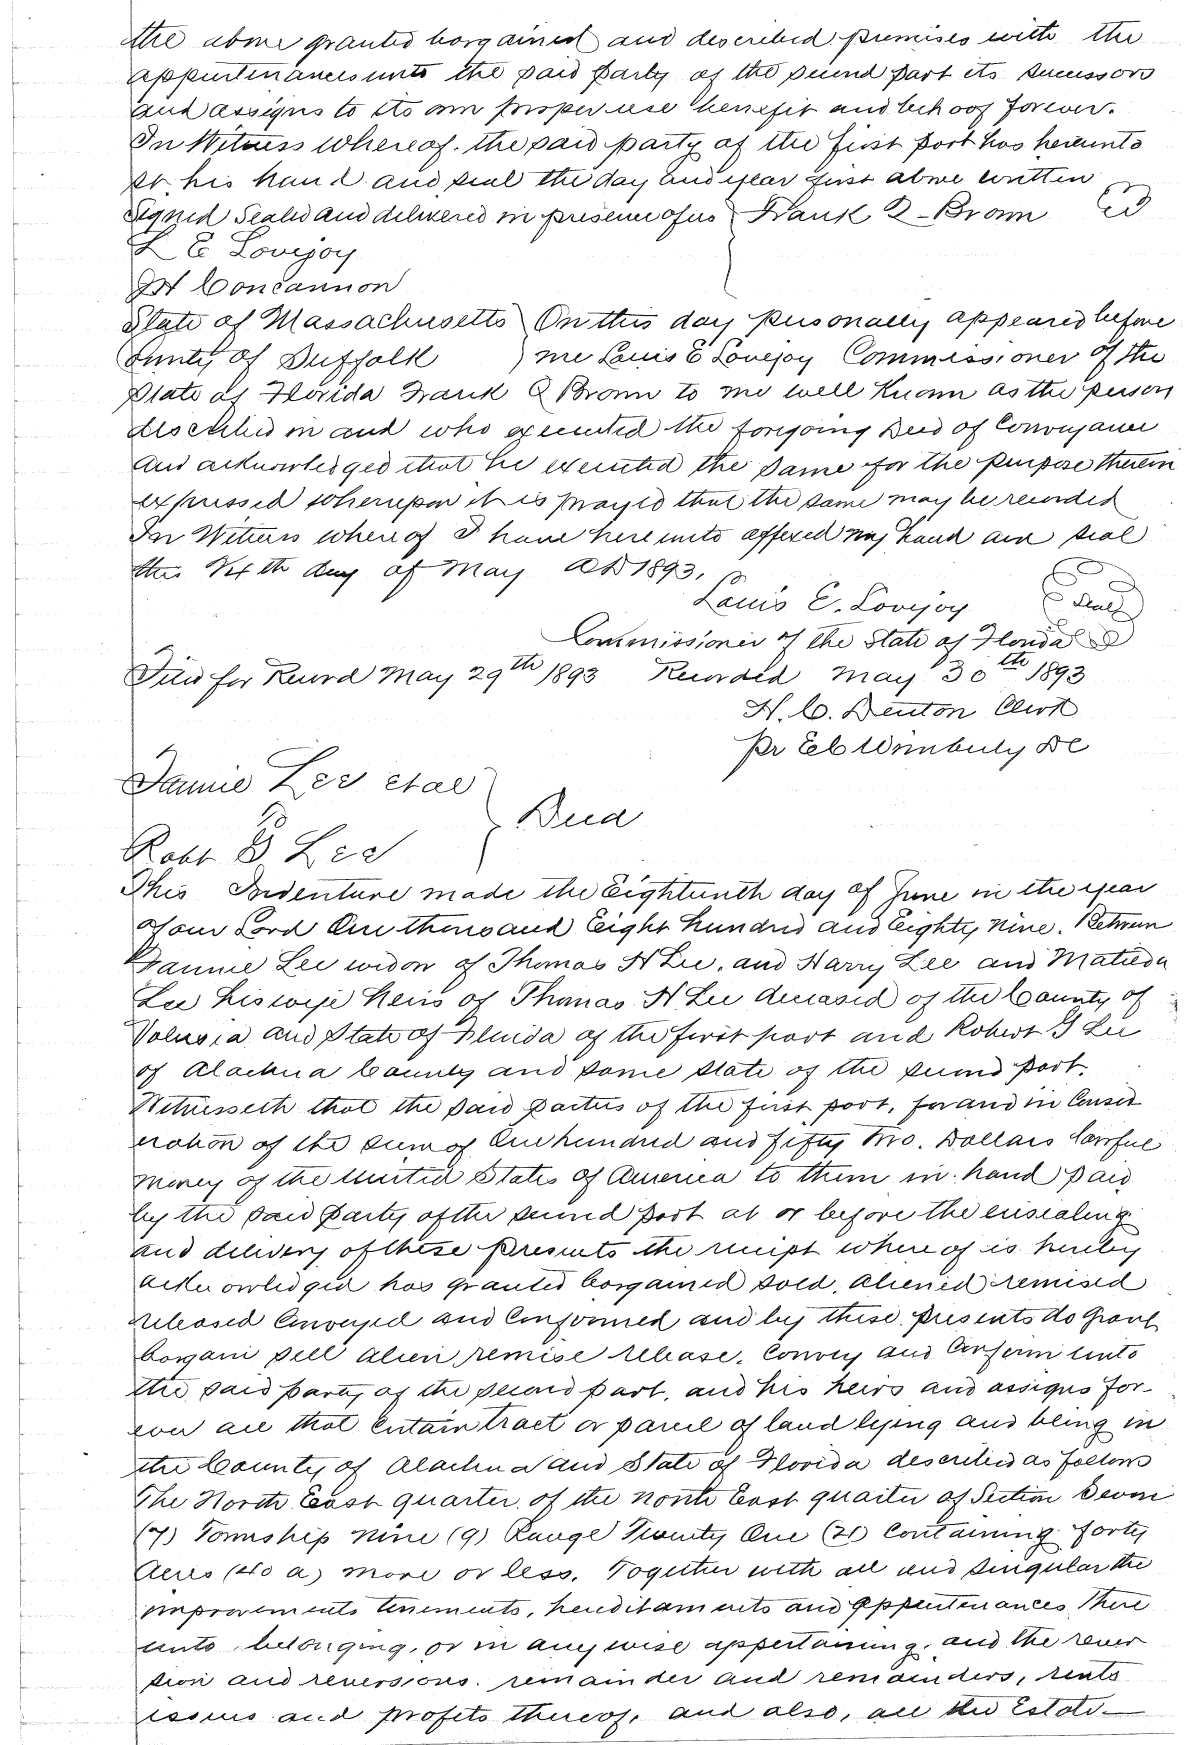 the above granted bargained and described premises with the
appurtenances unto the said party of the second part its successors
and assigns to its own proper use benefit and behoof forever.
In Witness whereof. the said party of the first part has hereunto
set his hand and seal the day and year first above written
Signed Sealed and delivered in presence of us } Frank Q Brown
L E Lovejoy
J H Concannon
State of Massachusetts } On this day personally appeared before
County of Suffolk } me Louis E Lovejoy Commissioner of the
State of Florida Frank Q Brown to me well known as the person
described in and who executed the foregoing Deed of Conveyance
and acknowledged that he executed the same for the purpose therein
expressed whereupon it is prayed that the same may be recorded
In Witness whereof I have hereunto affixed my hand and seal
this day of May AD 1893.
Louis E. Lovejoy Seal
Commissioner of the State of Florida
Filed for Record May 29th 1893 Recorded May 30th 1893
H. C. Denton Clerk
pr E C Wimberly DC
Fannie Lee et al
To } Deed
Robt G Lee
This Indenture made the Eighteenth day of June in the year
of our Lord One thousand Eight hundred and Eighty nine. Between
Fannie Lee widow of Thomas H Lee, and Harry Lee and Matilda
Lee his wife heirs of Thomas H Lee deceased of the County of
Volusia and State of Florida of the first part and Robert G Lee
of Alachua County and same state of the second part.
Witnesseth that the said parties of the first part, for and in Consid
eration of the sum of One hundred and fifty two. Dollars lawful
money of the United States of America to them in hand paid
by the said party of the second part at or before the ensealing
and delivery of these presents the receipt where of is hereby
acknowledged has granted bargained sold, aliened remised
released Conveyed and Confirmed and by these presents do grant
bargain sell alien, remise release, Convey and Confirm unto
the said party of the second part, and his heirs and assigns for-
ever all that Certain tract or parcel of land lying and being in
the County of Alachua and State of Florida described as follows
The North East quarter of the North East quarter of Section Seven
(7) Township Nine (9) Range Twenty One (21) Containing forty
Acres (40 a) more or less. Together with all and singular the
improvements tenements, hereditaments and appurtenances There
unto belonging, or in any wise appertaining, and the rever
sion and reversions. remainder and remainders, rents
issues and profits thereof, and also, all the Estate—